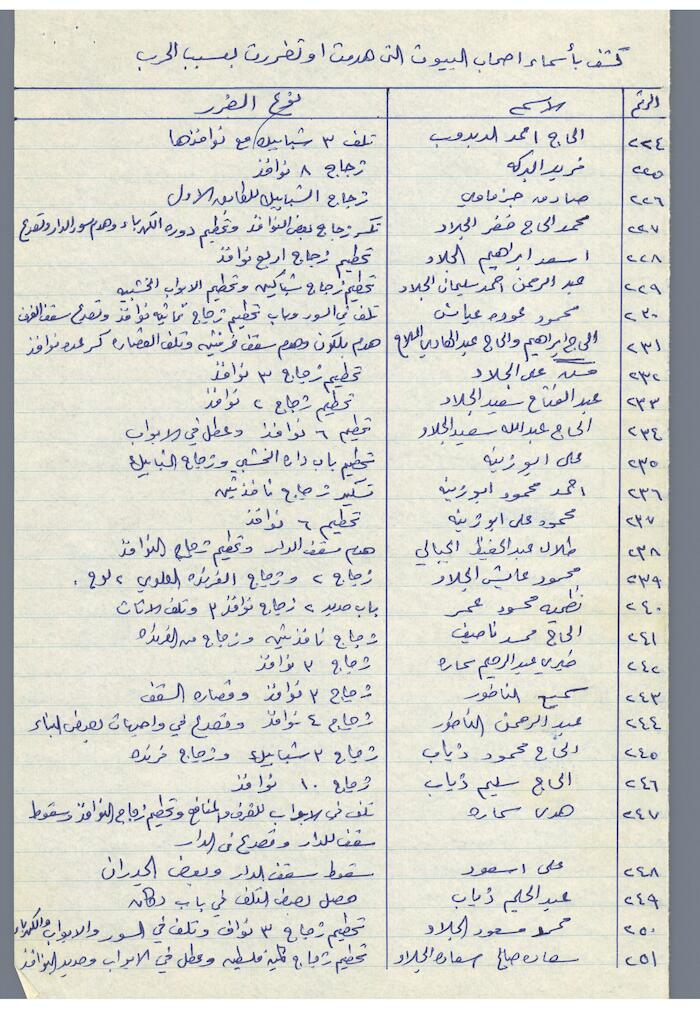 كشف بأسماء اصحاب البيوت التى هدمت او تضررت بسبب الحرب
الرقم الاسم نوع الضرر
٢٢٤ الحاج احمد الدبدوب تلف ٣ شبابيك مع نوافذها
٢٢٥ فريد البركه زجاج ٨ نوافذ
٢٢٦ صادق زجاج الشبابيك للطابق الاول
٢٢٧ محمد الحاج خضر الجلاد تكسر زجاج بعض النوافذ وتحطيم دورة الكهرباء وهدم سور الدار وتصدع
٢٢٨ اسعد ابراهيم الجلاد تحطيم زجاج اربع نوافذ
٢٢٩ عبد الرحمن احمد سليمان الجلاد تحطيم زجاج شباكين وتحطيم الابواب الخشبيه
٢٣٠ محمود عوده عياش تلف في السور وباب تحطيم زجاج ثمانيه نوافذ وتصدع سقف الغرف
٢٣١ الحاج ابراهيم والحاج عبد الهادي الملاح هدم بلكون وهدم سقف غرفتين وتلف القصاره كسر عدة نوافذ
٢٣٢ حسن على الجلاد تحطيم زجاج ٣ نوافذ
٢٣٣ عبد الفتاح سعيد الجلاد تحطيم زجاج ٢ نوافذ
٢٣٤ الحاج عبد الله سعيد الجلاد تحطيم ٦ نوافذ وعطل في الابواب
٢٣٥ على ابو زينه تحطيم باب داره الخشبي وزجاج الشبابيك
٢٣٦ احمد محمود ابو زينه تسكير زجاج نافذتين
٢٣٧ محمود على ابو زينه تحطيم ٦ نوافذ
٢٣٨ طلال عبد الحفيظ الجيالي هدم سقف الدار وتحطيم زجاج النوافذ
٢٣٩ محمود عايش الجلاد زجاج ٢ وزجاج الفرنده العلوي ٢ لوح .
٢٤٠ نظميه محمود عمر باب حديد ٢ زجاج نوافذ ٣ وتلف الاثاث
٢٤١ الحاج محمد ناصيف زجاج نافذتين وزجاج من الفرنده
٢٤٢ خيري عبد الرحيم سماره زجاج ٣ نوافذ
٢٤٣ سميع الناطور زجاج ٣ نوافذ وقصاره السقف
٢٤٤ عبد الرحمن الناطور زجاج ٤ نوافذ وتصدع في واجهات بعض البناء
٢٤٥ الحاج محمود ذياب زجاج ٣ شبابيك وزجاج فرنده
٢٤٦ الحاج سليم ذياب زجاج ١٠ نوافذ
٢٤٧ هدى سماره تلف في الابواب للغرف والمنافع وتحطيم زجاج النوافذ وسقوط
سقف للدار وتصدع في الدار
٢٤٨ على اسعود سقوط سقف الدار وبعض الجدران
٢٤٩ عبد الحليم ذياب حصل بعض التلف في باب دكان
٢٥٠ محمد مسعود الجلاد تحطيم زجاج ٣ نوافذ وتلف في السور والابواب والكهرباء
٢٥١ سعاده صالح سعاده الجلاد تحطيم زجاج وعطل في الابواب وحديد النوافذ